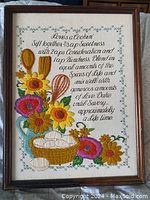 Love's a Cookin'
Sift together 4 cup Sweetness
with 2 cups Consideration and
1 cup Kindness. Blend in
equal amounts of the
Spices of Life and
mix well with
generous amounts
of Love. Bake
until Savory...
approximately
a life time
Copyright 2024 - AuctionNinja.com